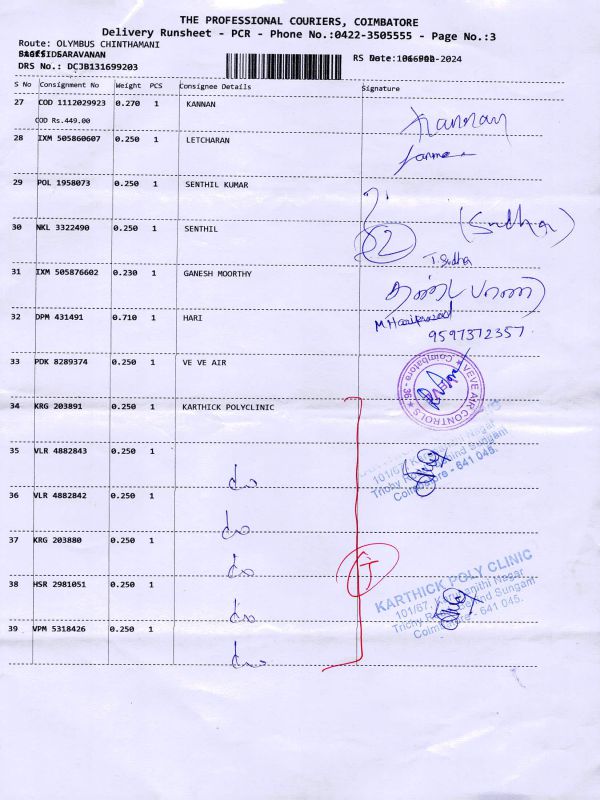 THE PROFESSIONAL COURIERS, COIMBATORE
Delivery Runsheet - PCR - Phone No.:0422-3505555 - Page No.:3
Route: OLYMBUS CHINTHAMANI
SARAVANAN
DRS No.: DCJB131699203
RS -2024
S No Consignment No Weight PCS Consignee Details Signature
27 COD 1112029923 0.270 1 KANNAN Kannan
COD Rs.449.00
28 IXM 505860607 0.250 1 LETCHARAN
29 POL 1958073 0.250 1 SENTHIL KUMAR
(Sudha)
30 NKL 3322490 0.250 1 SENTHIL 2
T. Sudha
31 IXM 505876602 0.230 1 GANESH MOORTHY
32 DPM 431491 0.710 1 HARI M Hariprasad
9597372357
33 PDK 8289374 0.250 1 VE VE AIR
VEVE AIR CONTROLS
Coimbatore - 36
34 KRG 203891 0.250 1 KARTHICK POLYCLINIC
35 VLR 4882843 0.250 1 do
101/67, Nagar
Trichy Road, Behind Sungam
Coimbatore - 641 045.
36 VLR 4882842 0.250 1 do
37 KRG 203880 0.250 1 do
38 HSR 2981051 0.250 1 do
KARTHICK POLY CLINIC
101/67, Nagar
Trichy Road, Behind Sungam
Coimbatore - 641 045.
39 VPM 5318426 0.250 1 do